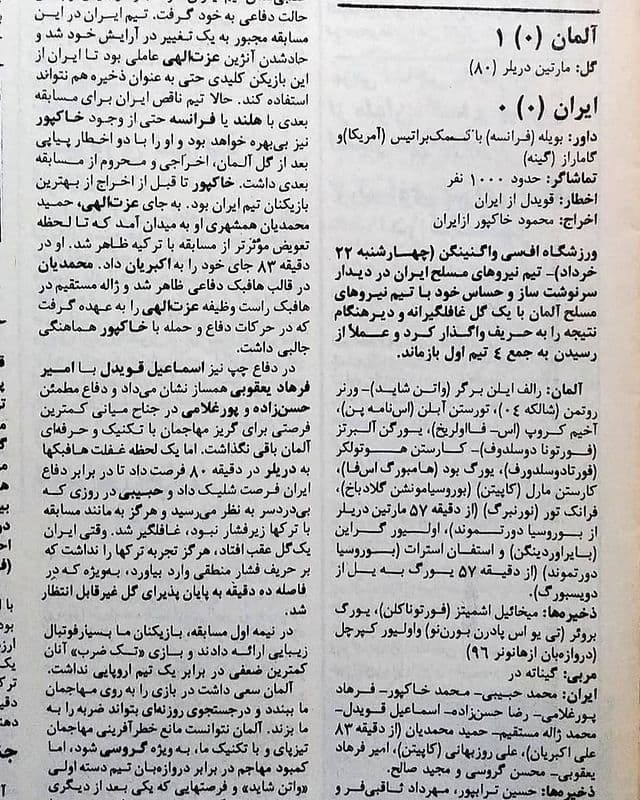 آلمان (۰) ۱
گل: مارتین دریلر (۸۰)
ایران (۰) ۰
داور: بویله (فرانسه) با کمک براتیس (آمریکا) و
گاماراز (گینه)
تماشاگر: حدود ۱۰۰۰ نفر
اخطار: قویدل از ایران
اخراج: محمود خاکپور ازایران
ورزشگاه اف‌سی واگنینگن (چهارشنبه ۲۲
خرداد)- تیم نیروهای مسلح ایران در دیدار
سرنوشت ساز و حساس خود با تیم نیروهای
مسلح آلمان با یک گل غافلگیرانه و دیرهنگام
نتیجه را به حریف واگذار کرد و عملاً از
رسیدن به جمع ۴ تیم اول بازماند.
آلمان: رالف ایلن برگر (واتن شاید)- ورنر
روتمن (شالکه ۰۴)، تورستن آبلن (اس‌نامه پن)،
آخیم کروپ (اس- فااولریخ)، یورگن آلبرتز
(فورتونا دوسلدوف)- کارستن هوتولکر
(فورتادوسلدورف)، یورگ بود (هامبورگ اس‌فا)،
کارستن مارل (کاپیتن) (بوروسیامونشن گلادباخ)،
فرانک تور (نورنبرگ) (از دقیقه ۵۷ مارتین دریلر
از بوروسیا دورتموند)، اولیور گراین
(بایراوردینگن) و استفان استرات (بوروسیا
دورتموند) (از دقیقه ۵۷ یورگ به یل از
دویسبورگ).
ذخیره‌ها: میخائیل اشمیتز (فورتوناکلن)، یورگ
بروئر (تی یو اس پادرن بورن‌نو) واولیور کپرچل
(دروازه‌بان ازهانوئر ۹۶)
مربی: گیناته در
ایران: محمد حبیبی- محمد خاکپور- فرهاد
پورغلامی- رضا حسن‌زاده- اسماعیل قویدل-
محمد ژاله مستقیم- حمید محمدیان (از دقیقه ۸۳
علی اکبریان)، علی روزبهانی (کاپیتن)، امیر فرهاد
یعقوبی- محسن گروسی و مجید صالح.
ذخیره‌ها: حسین ترابپور، مهرداد ثاقبی‌فر و
حالت دفاعی به خود گرفت. تیم ایران در این
مسابقه مجبور به یک تغییر در آرایش خود شد و
حادشدن آنژین عزت‌الهی عاملی بود تا ایران از
این بازیکن کلیدی حتی به عنوان ذخیره هم نتواند
استفاده کند. حالا تیم ناقص ایران برای مسابقه
بعدی با هلند یا فرانسه حتی از وجود خاکپور
نیز بی‌بهره خواهد بود و او را با دو اخطار پیاپی
بعد از گل آلمان، اخراجی و محروم از مسابقه
بعدی داشت. خاکپور تا قبل از اخراج از بهترین
بازیکنان تیم ایران بود. به جای عزت‌الهی، حمید
محمدیان همشهری او به میدان آمد که تا لحظه
تعویض موثرتر از مسابقه با ترکیه ظاهر شد. او در
دقیقه ۸۳ جای خود را به اکبریان داد. محمدیان
در قالب هافبک دفاعی ظاهر شد و ژاله مستقیم در
هافبک راست وظیفه عزت‌الهی را به عهده گرفت
که در حرکات دفاع و حمله با خاکپور هماهنگی
جالبی داشت.
در دفاع چپ نیز اسماعیل قویدل با امیر
فرهاد یعقوبی همساز نشان می‌داد و دفاع مطمئن
حسن‌زاده و پورغلامی در جناح میانی کمترین
فرصتی برای گریز مهاجمان با تکنیک و حرفه‌ای
آلمان باقی نگذاشت. اما یک لحظه غفلت هافبکها
به دریلر در دقیقه ۸۰ فرصت داد تا در برابر دفاع
ایران فرصت شلیک داد و حبیبی در روزی که
بی‌دردسر به نظر می‌رسید و هرگز به مانند مسابقه
با ترکها زیرفشار نبود، غافلگیر شد. وقتی ایران
یک‌گل عقب افتاد، هرگز تجربه ترکها را نداشت که
بر حریف فشار منطقی وارد بیاورد، به‌ویژه که در
فاصله ده دقیقه به پایان پذیرای گل غیرقابل انتظار
شد.
در نیمه اول مسابقه، بازیکنان ما بسیارفوتبال
زیبایی ارائه دادند و بازی «تک ضرب» آنان
کمترین ضعفی در برابر یک تیم اروپایی نداشت.
آلمان سعی داشت در بازی را به روی مهاجمان
ما ببندد و درجستجوی روزنه‌ای بتواند ضربه را به
ما بزند. آلمان نتوانست مانع خطرآفرینی مهاجمان
تیزپای و با تکنیک ما، به ویژه گروسی شود، اما
کمبود مهاجم در برابر دروازه‌بان تیم دسته اولی
«واتن شاید» و فرصتهایی که یکی بعد از دیگری